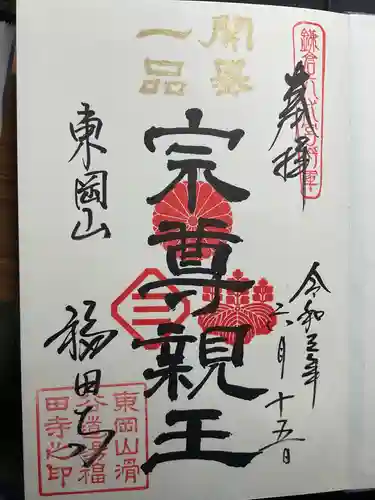 鎌倉六代宮将軍
奉拝
令和五年
六月十五日
開基
一品
宗尊親王
三
東岡山
福田寺
東岡山滑
谷道場福
田寺之印